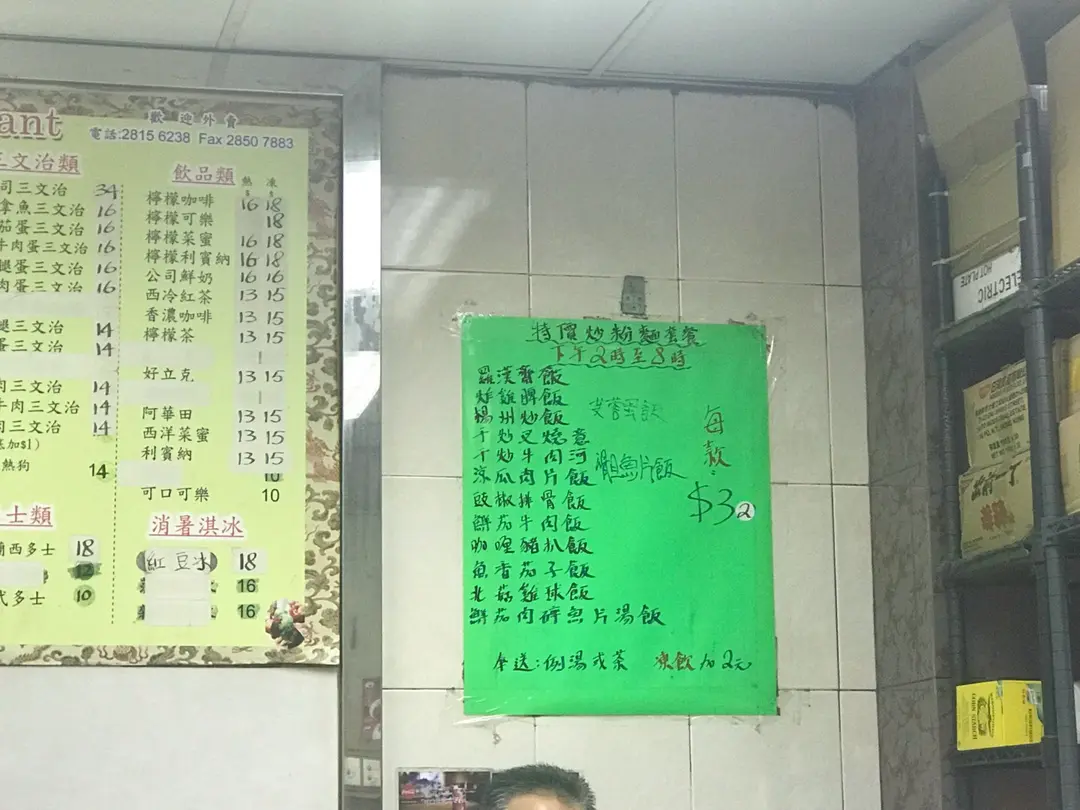 ant
歡迎外賣
電話:2815 6238 Fax 2850 7883
三文治類
司三文治 34
拿魚三文治 16
茄蛋三文治 16
牛肉蛋三文治 16
腿蛋三文治 16
肉蛋三文治 16
腿三文治 14
蛋三文治 14
肉三文治 14
牛肉三文治 14
司三文治 14
加$1)
熱狗 14
士類
西多士 18
12
式多士 10
飲品類 熱 凍
檸檬咖啡 16 18
檸檬可樂 18
檸檬菜蜜 16 18
檸檬利賓納 16 18
公司鮮奶 16 16
西冷紅茶 13 15
香濃咖啡 13 15
檸檬茶 13 15
好立克 13 15
阿華田 13 15
西洋菜蜜 13 15
利賓納 13 15
10
可口可樂 10
消暑淇冰
紅豆冰 18
16
16
特價炒粉麵套餐
下午2時至8時
羅漢齋飯
炸雞脾飯
揚州炒飯
干炒叉燒意
干炒牛肉河
涼瓜肉片飯
豉椒排骨飯
鮮茄牛肉飯
咖喱豬扒飯
魚香茄子飯
北菇雞球飯
鮮茄肉碎魚片湯飯
魚片飯
每款
$32
奉送:例湯或茶 凍飲加2元
ELECTRIC
HOT PLATE